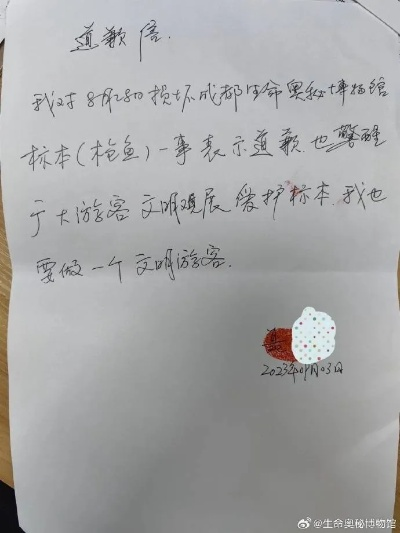 道歉信.
我对8月28日损坏成都生命奥秘博物馆
标本(枪鱼)一事表示道歉也警醒
广大游客文明观展 爱护标本.我也
要做一个文明游客.
2023年09月03日
@生命奥秘博物馆